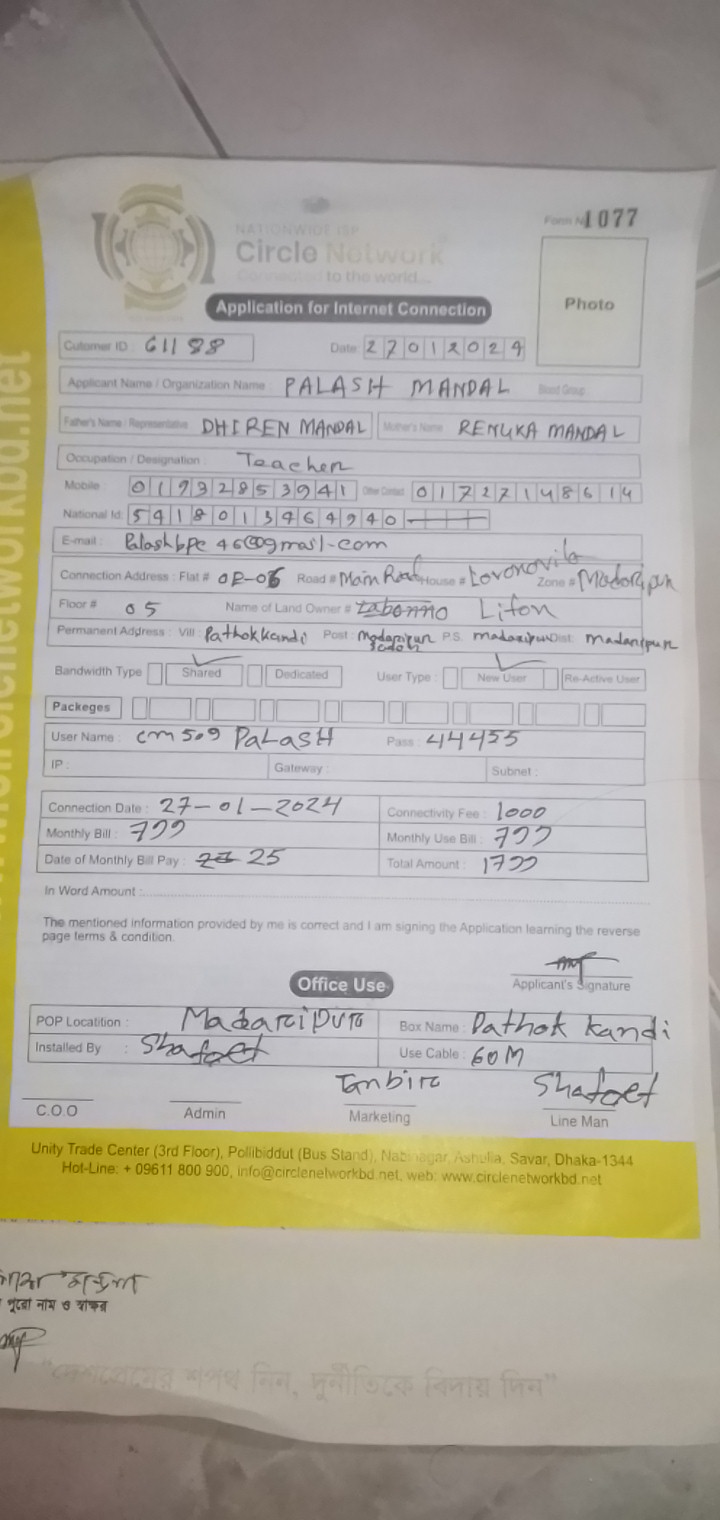 NATIONWIDE ISP
Circle Network
Connected to the world...
Form N 1077
Photo
Application for Internet Connection
Cutomer ID : 61188 Date: 27012024
Applicant Name / Organization Name : PALASH MANDAL Blood Group
Father's Name / Representative DHIREN MANDAL Mother's Name RENUKA MANDAL
Occupation / Designation : Teacher
Mobile : Other Contact : 01727148614
National Id:
E-mail :
Connection Address : Flat # Road # Main Road House # Zone # Madoripur
Floor # 05 Name of Land Owner # Liton
Permanent Address : Vill : Pathokkandi Post : P.S. madaripur Dist: madaripur
Bandwidth Type Shared Dedicated User Type : New User Re-Active User
Packeges
User Name : cm509 PALASH Pass : 44455
IP : Gateway : Subnet :
Connection Date : 27-01-2024 Connectivity Fee : 1000
Monthly Bill : 799 Monthly Use Bill : 799
Date of Monthly Bill Pay : 25 Total Amount : 1799
In Word Amount :
The mentioned information provided by me is correct and I am signing the Application learning the reverse
page terms & condition.
Applicant's Signature
Office Use
POP Locatition : Madaripur Box Name : Pathok kandi
Installed By : Shafaet Use Cable : 60M
Tanbir Shafaet
C.O.O Admin Marketing Line Man
Unity Trade Center (3rd Floor), Pollibiddut (Bus Stand), Nabinagar, Ashulia, Savar, Dhaka-1344
Hot-Line: + 09611 800 900, info@circlenetworkbd.net, web: www.circlenetworkbd.net
পুরো নাম ও স্বাক্ষর
"দেশপ্রেমের শপথ নিন, দুর্নীতিকে বিদায় দিন"